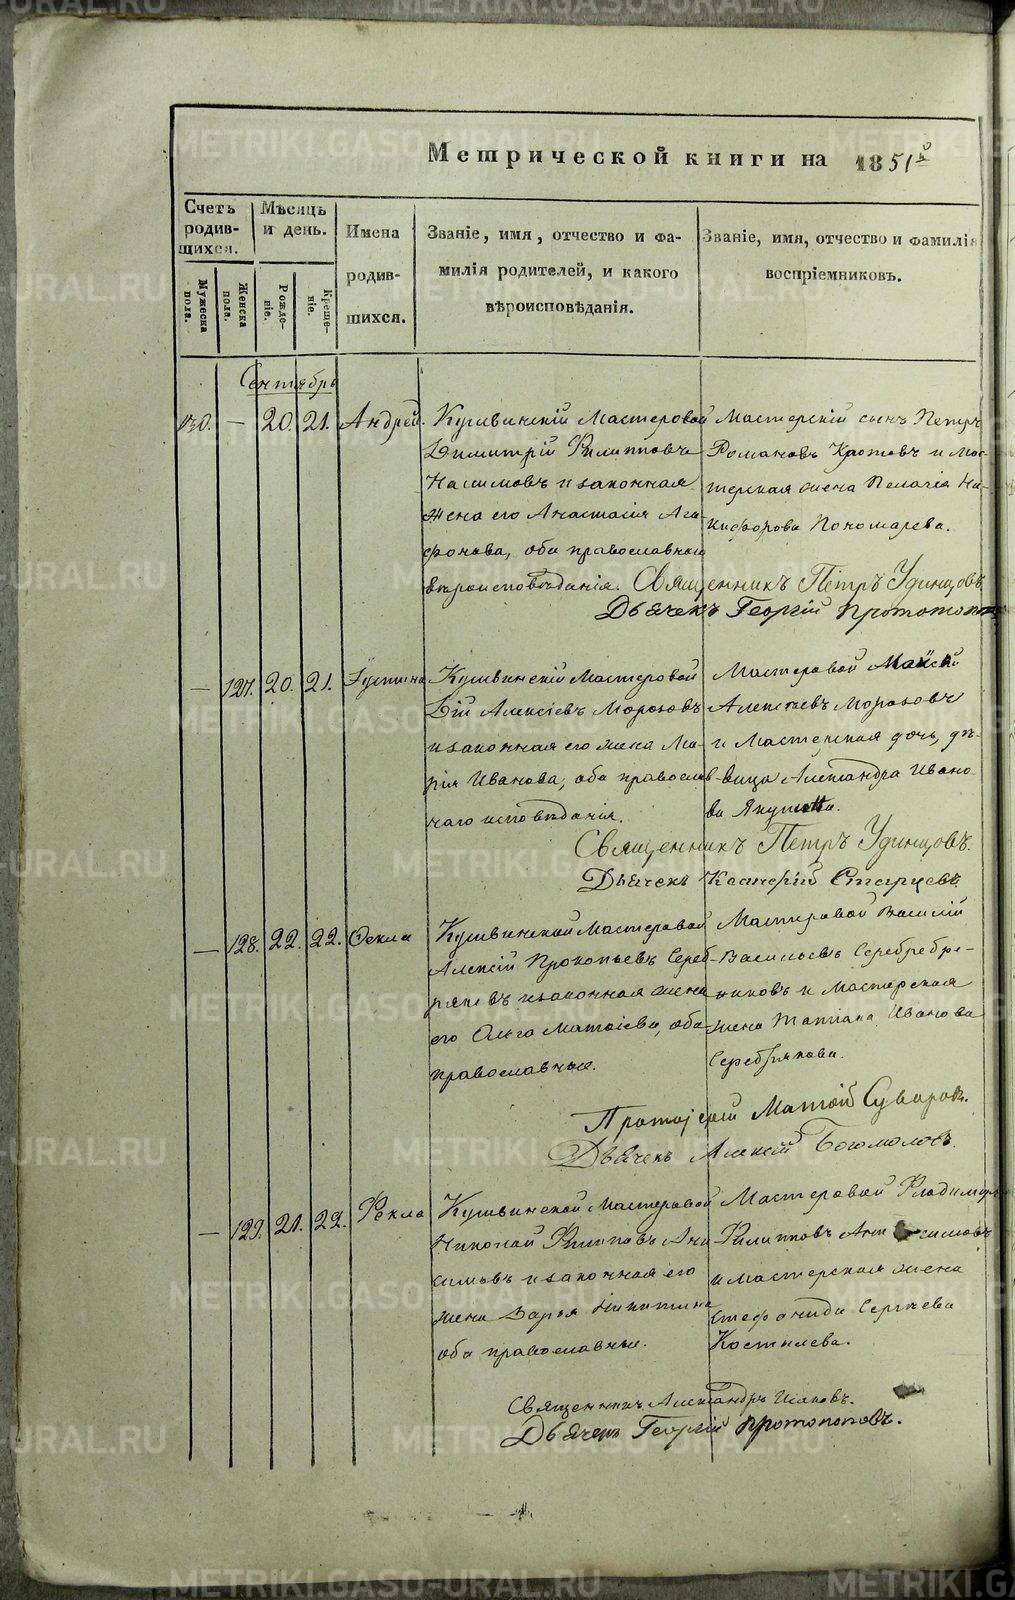 Метрической книги на 1851й
Счетъ родившихся.
Мѣсяцъ и день.
Имена родившихся.
Званіе, имя, отчество и фамилія родителей, и какого вѣроисповѣданія.
Званіе, имя, отчество и фамилія воспріемниковъ.
Мужеска пола.
Женска пола.
Рожденіе.
Крещеніе.
Сентябрь
130. — 20. 21. Андрей.
Кушвинскій Мастеровой
Димитрій Филипповъ
и законная
жена его Анастасія Ага-
фонова, оба православнаго
вѣроисповѣданія.
Мастерскій сынъ Петръ
Романовъ и Мас-
терская жена Пелагія Ни-
кифорова Пономарева.
Священникъ Петръ Удинцовъ.
Дьячекъ Георгій Протопопов
— 127. 20. 21. Іустина
Кушвинскій Мастеровой
Алексіевъ Морозовъ
и законная его жена Ма-
рія Иванова, оба православ-
наго исповѣданія.
Мастеровой
Алексѣевъ Морозовъ
и Мастерская дочь, дѣ-
вица Александра Ивано-
ва
Священникъ Петръ Удинцовъ.
Дьячекъ Старцевъ.
— 128. 22. 22. Ѳекла
Кушвинской Мастеровой
Алексій Прокопьевъ Сереб-
ряковъ и законная жена
его Ольга Матѳіева, оба
православные.
Мастеровой Василій
Васильевъ Серебре-
никовъ и Мастерская
жена Татіана Иванова
Серебрякова.
Протоіерей Матѳій Суворов.
Дьячекъ Алексій Богомоловъ.
— 129. 21. 22. Ѳекла
Кушвинской Мастеровой
Николай Филиповъ Ани
симовъ и законная его
жена Варья Никитина
оба православные.
Мастеровой Владимиръ
Филипповъ Анисимовъ
и мастерская жена
Стефанида Сергѣева
Костылева.
Священникъ Александръ Исаковъ.
Дьячекъ Георгій Протопоповъ.
METRIKI.GASO-URAL.RU